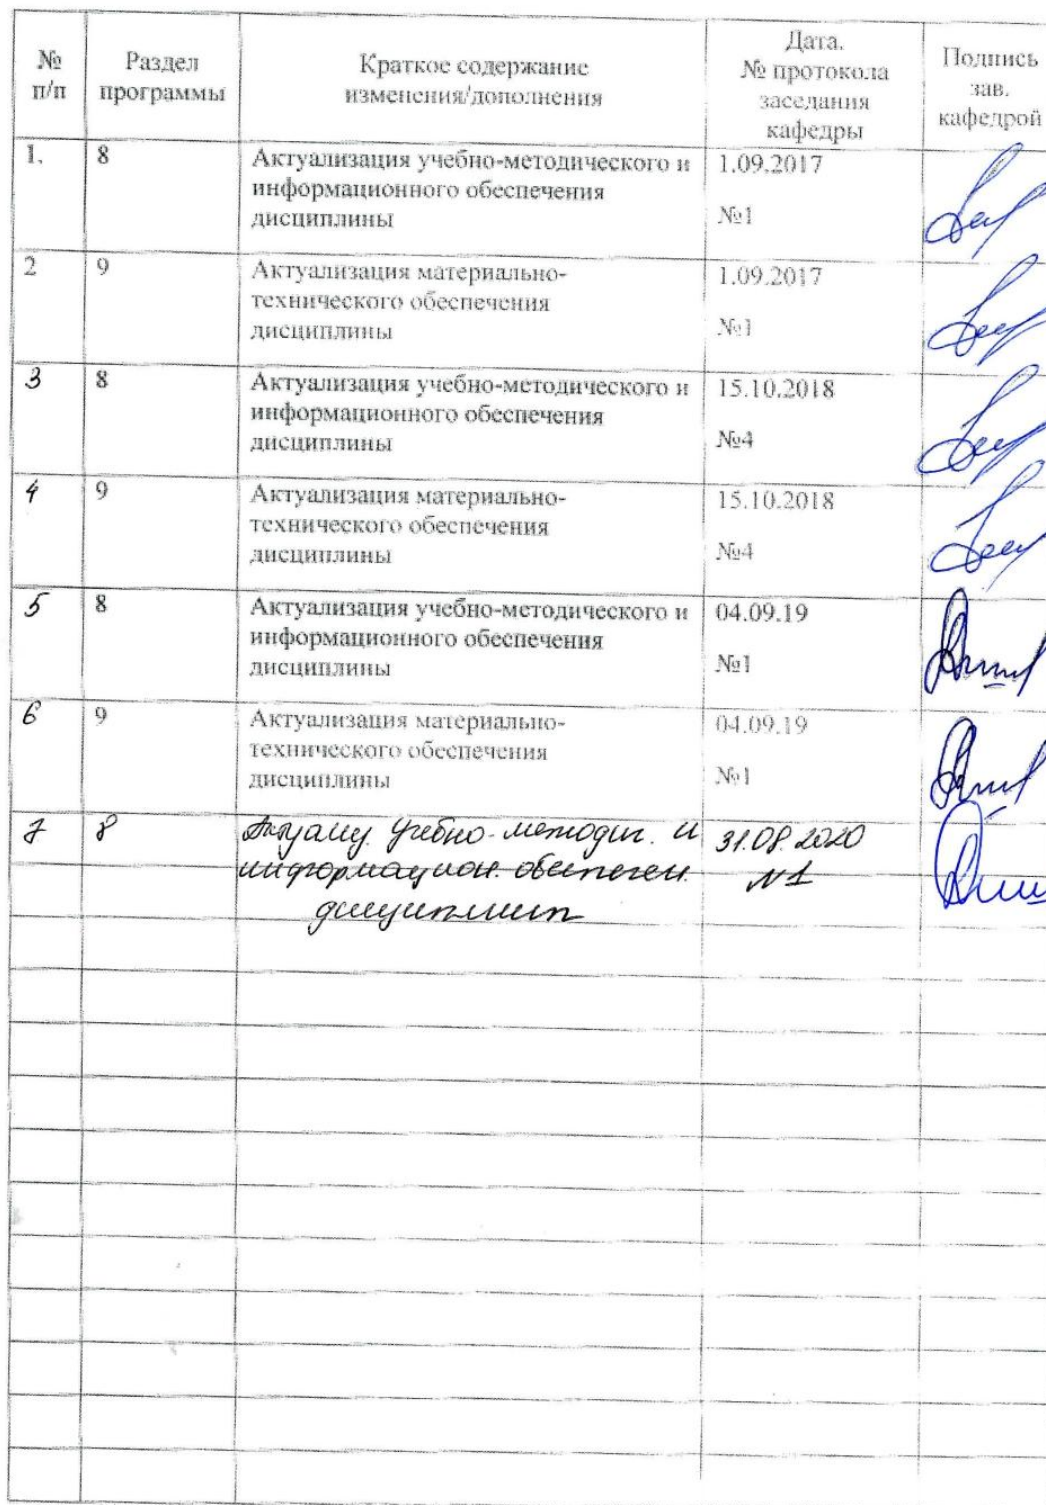 №
п/п
Раздел
программы
Краткое содержание
изменения/дополнения
Дата.
№ протокола
заседания
кафедры
Подпись
зав.
кафедрой
1.
8
Актуализация учебно-методического и
информационного обеспечения
дисциплины
1.09.2017
№1
2
9
Актуализация материально-
технического обеспечения
дисциплины
1.09.2017
№1
3
8
Актуализация учебно-методического и
информационного обеспечения
дисциплины
15.10.2018
№4
4
9
Актуализация материально-
технического обеспечения
дисциплины
15.10.2018
№4
5
8
Актуализация учебно-методического и
информационного обеспечения
дисциплины
04.09.19
№1
6
9
Актуализация материально-
технического обеспечения
дисциплины
04.09.19
№1
7
8
учебно-методич. и
информацион. обеспечен.
31.08.2020
№1